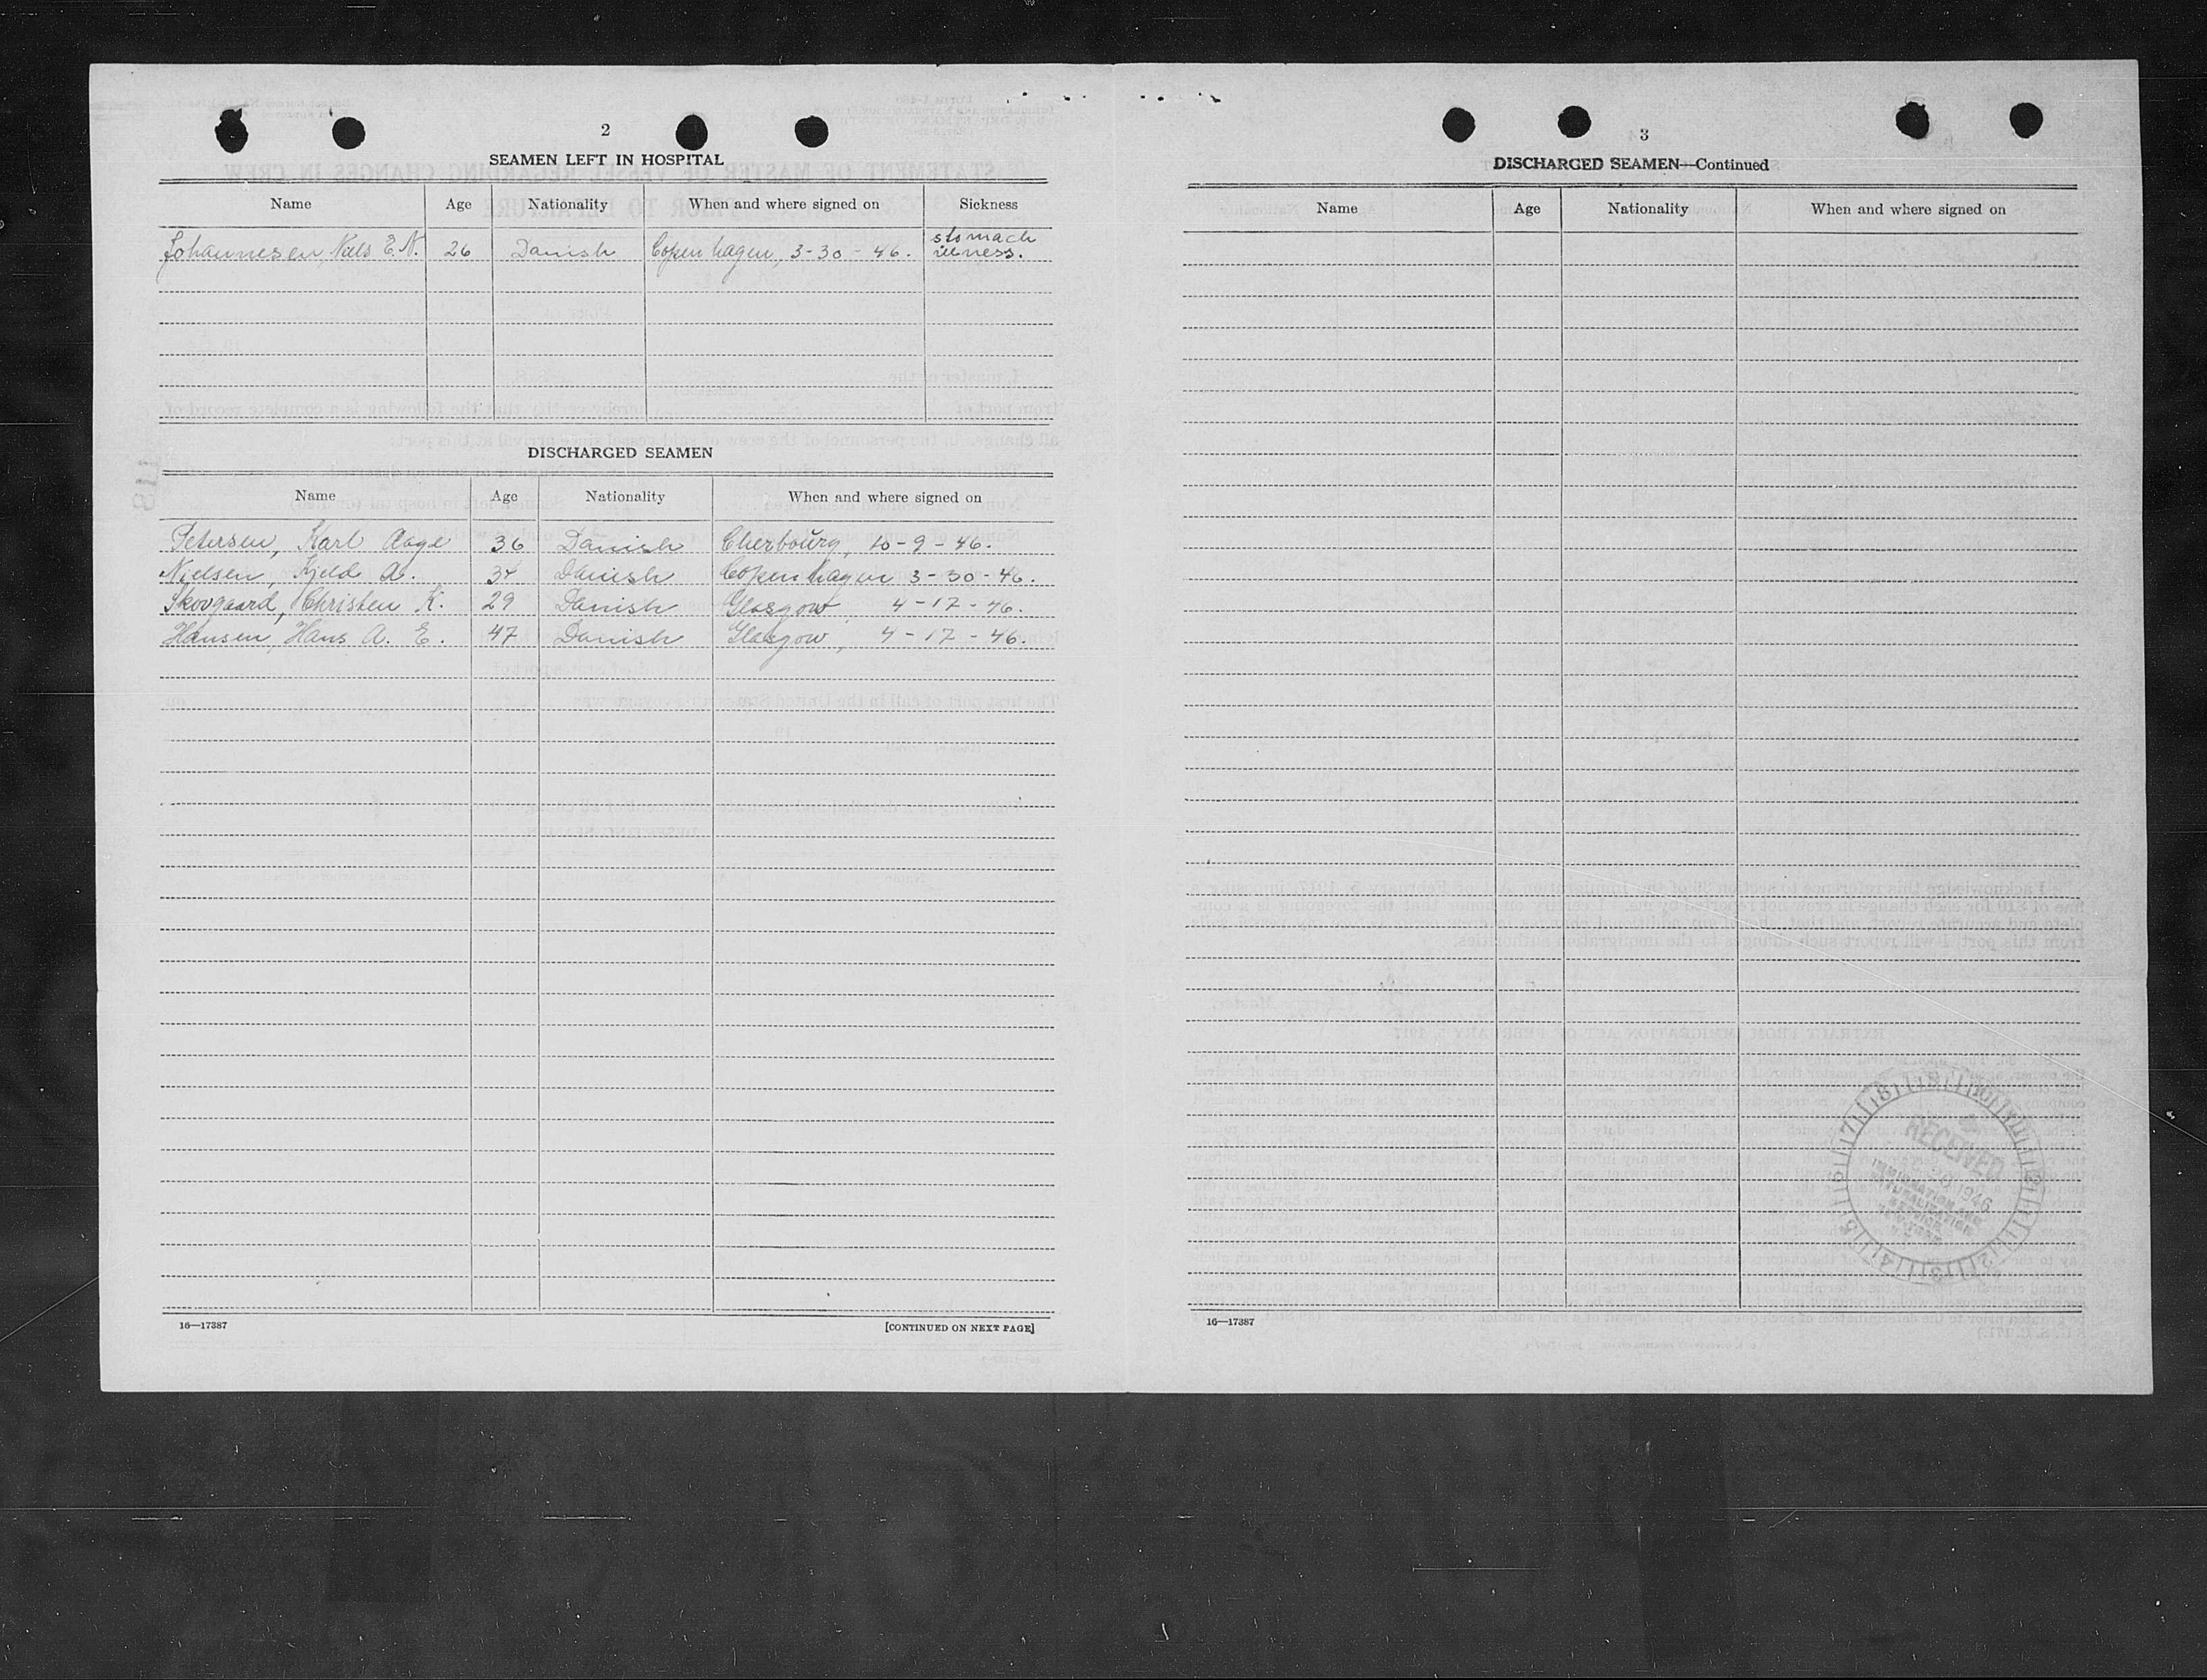 2
SEAMEN LEFT IN HOSPITAL
Name Age Nationality When and where signed on Sickness
Johannesen, Niels E. N. 26 Danish Copenhagen, 3-30-46. stomach
illness.
DISCHARGED SEAMEN
Name Age Nationality When and where signed on
Petersen, Karl Aage 36 Danish Cherbourg, 10-9-46.
Nielsen, Kjeld A. Danish Copenhagen 3-30-46.
Skovgaard, Christen K. 29 Danish Glasgow, 4-17-46.
Hansen, Hans A. E. 47 Danish Glasgow, 4-17-46.
16—17387 [CONTINUED ON NEXT PAGE]
3
DISCHARGED SEAMEN—Continued
Name Age Nationality When and where signed on
RECEIVED
1946
IMMIGRATION AND
NATURALIZATION
SERVICE
16—17387